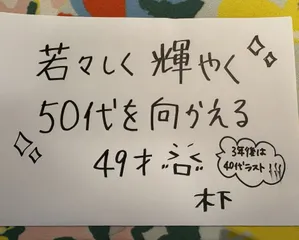 若々しく 輝やく
50代を向かえる
49才
3年後は
40代ラスト!!!
木下